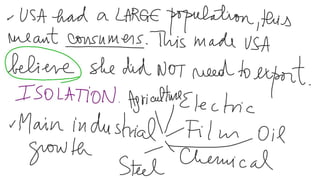 ✓ USA had a LARGE population, this
meant consumers. This made USA
believe she did NOT need to export.
ISOLATION. Agriculture Electric
✓ Main industrial Film Oil
growth Steel Chemical